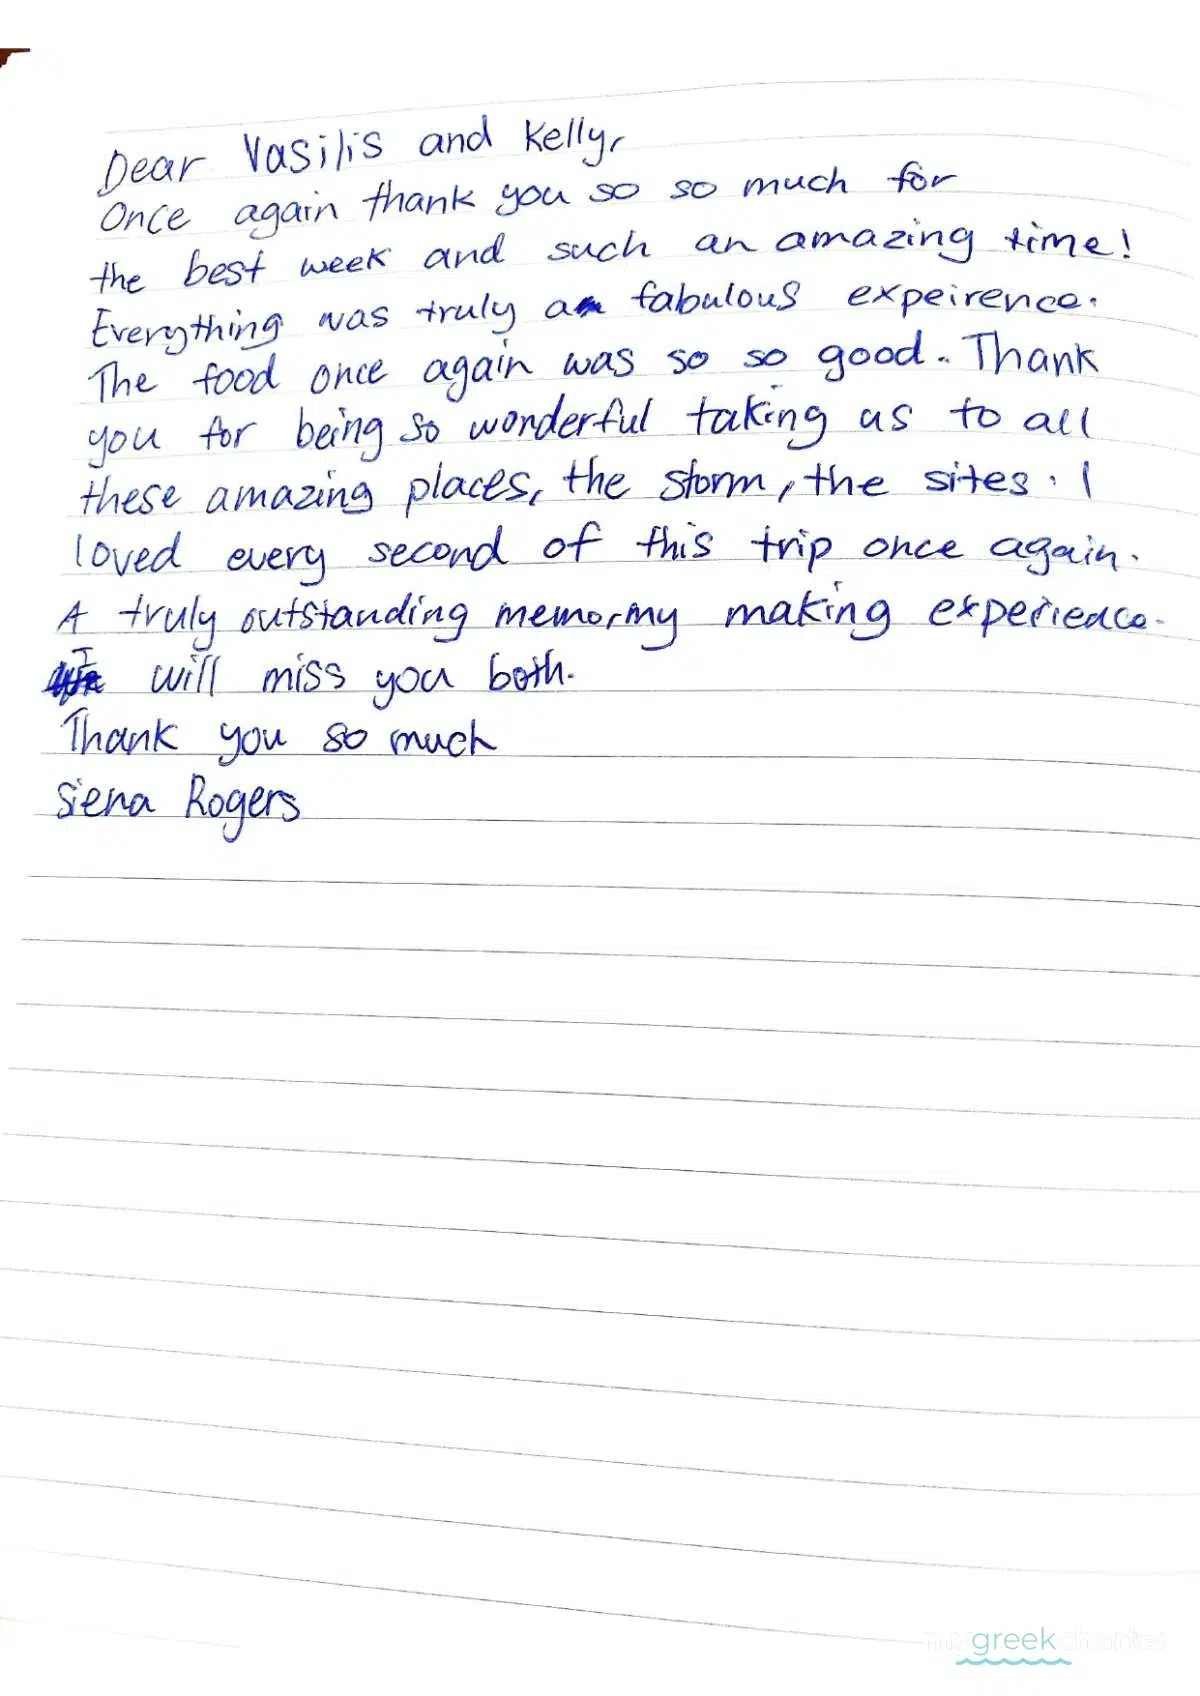 Dear Vasilis and Kelly,
Once again thank you so so much for
the best week and such an amazing time!
Everything was truly a fabulous expeirence.
The food once again was so so good. Thank
you for being so wonderful taking us to all
these amazing places, the storm, the sites. I
loved every second of this trip once again.
A truly outstanding memormy making experience.
I will miss you both.
Thank you so much
Siena Rogers
mygreekcharter